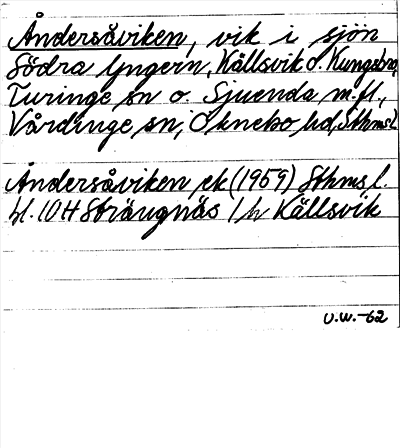 Åndersåviken, vik i sjön
Södra Yngern, Källsvik o. Kungsbro,
Turinge sn o. Sjuenda m.fl.,
Vårdinge sn, Öknebo hd, Sthms l.
Åndersåviken ek (1959) Sthms l.
bl. 10 H Strängnäs 1/h Källsvik
U.W.-62